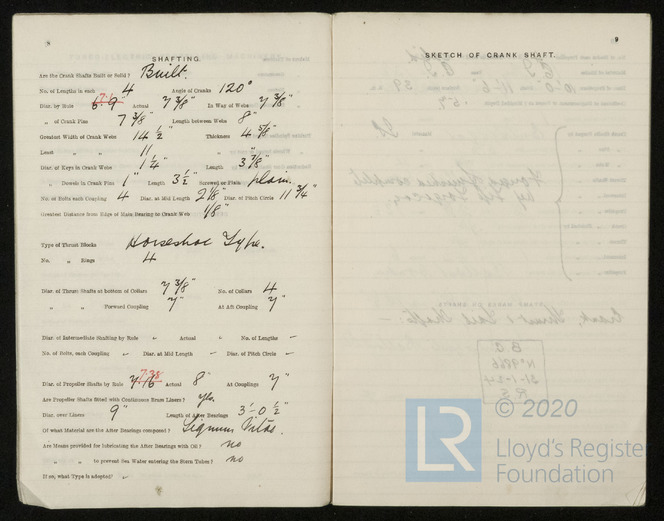 8
SHAFTING.
Are the Crank Shafts Built or Solid? Built.
No. of Lengths in each 4 Angle of Cranks 120°
Diar. by Rule 7.1 6·9" Actual 7 3/8" In Way of Webs 7 3/8"
„ of Crank Pins 7 3/8" Length between Webs 8"
Greatest Width of Crank Webs 14 1/2" Thickness 4 5/8"
Least „ „ 11 „ „
Diar. of Keys in Crank Webs 1 1/4" Length 3 7/8"
„ Dowels in Crank Pins 1" Length 3 1/2" Screwed or Plain plain.
No. of Bolts each Coupling 4 Diar. at Mid Length 2 1/8" Diar. of Pitch Circle 11 3/4"
Greatest Distance from Edge of Main Bearing to Crank Web 1/8"
Type of Thrust Blocks Horseshoe Type.
No. „ Rings 4
Diar. of Thrust Shafts at bottom of Collars 7 3/8" No. of Collars 4
„ „ Forward Coupling 7" At Aft Coupling 7"
Diar. of Intermediate Shafting by Rule – Actual – No. of Lengths –
No. of Bolts, each Coupling – Diar. at Mid Length – Diar. of Pitch Circle –
Diar. of Propeller Shafts by Rule 7.38 Actual 8" At Couplings 7"
Are Propeller Shafts fitted with Continuous Brass Liners? yes.
Diar. over Liners 9" Length of After Bearings 3'-0 1/2"
Of what Material are the After Bearings composed? Lignum Vitae.
Are Means provided for lubricating the After Bearings with Oil? no
„ „ to prevent Sea Water entering the Stern Tubes? no
If so, what Type is adopted? –
9
SKETCH OF CRANK SHAFT.
© 2020
LR
Lloyd's Register
Foundation